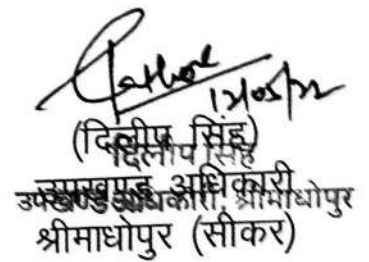 12/05/22
(दिलीप सिंह)
दिलीप सिंह
उपखण्ड अधिकारी
उपखण्ड अधिकारी, श्रीमाधोपुर
श्रीमाधोपुर (सीकर)